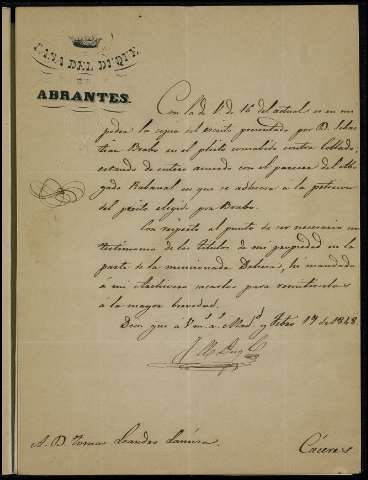 CASA DEL DUQUE
DE
ABRANTES.
Con la de V. de 16 del actual es en mi
poder la copia del escrito presentado por D. Sebas
tián Bravo en el pleito entablado contra
estando de entero acuerdo con el parecer del Abo
gado en que se adhiera a la peticion
del perito elegido por Bravo.
Con respecto al punto de ser necesario un
testimonio de los titulos de mi propiedad en la
parte de la mencionada Dehesa, hé mandado
á mi Archivero sacarlos para remitirselos
á la mayor brevedad.
Dios gue á V. m. a. Mad.d y Febro 19 de 1848.
A. D. Tomas Leandro
Caceres.